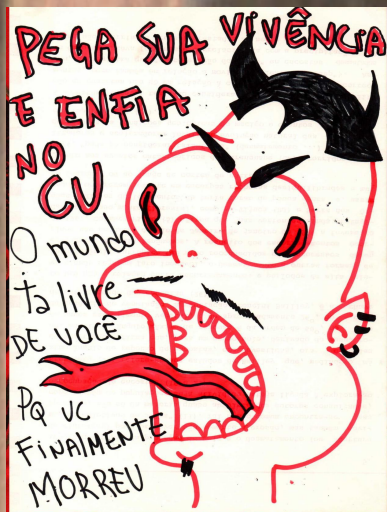 PEGA SUA VIVÊNCIA
E ENFIA
NO
CU
O mundo
ta livre
DE VOCÊ
PQ VC
FINALMENTE
MORREU